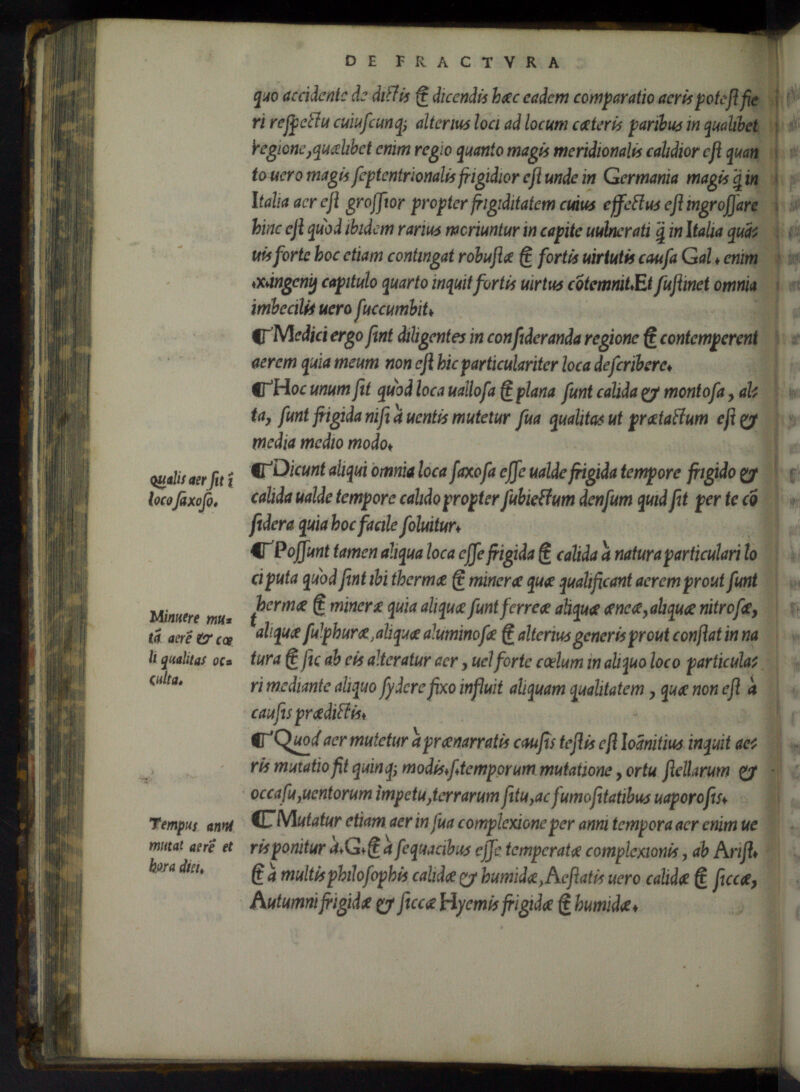 DE FRACTVRA
quo accidente de dictis & dicendis hæc eadem comparatio aeris potest fie
ri respectu cuiuscunq; alterius loci ad locum cæteris paribus in qualibet
regione, quælibet enim regio quanto magis meridionalis calidior est quan
to uero magis septentrionalis frigidior est unde in Germania magis q̃ in
Italia aer est grossior propter frigiditatem cuius effectus est ingrossare
hinc est quòd ibidem rarius moriuntur in capite uulnerati q̃ in Italia quã=
uis forte hoc etiam contingat robustæ & fortis uirtutis causa Gal. enim
.x. ingenij capitulo quarto inquit fortis uirtus cõtemnit. Et sustinet omnia
imbecilis uero succumbit.
¶ Medici ergo sint diligentes in consideranda regione & contemperent
aerem quia meum non est hic particulariter loca describere.
¶ Hoc unum sit quòd loca uallosa & plana sunt calida & montosa, al=
ta, sunt frigida nisi à uentis mutetur sua qualitas ut prætactum est &
media medio modo.
Qualis aer sit ĩ
loco saxoso.
¶ Dicunt aliqui omnia loca saxosa esse ualde frigida tempore frigido &
calida ualde tempore calido propter subiectum densum quid sit per te cõ
sidera quia hoc facile soluitur.
¶ Possunt tamen aliqua loca esse frigida & calida à natura particulari lo
ci puta quòd sint ibi thermæ & mineræ quæ qualificant aerem prout sunt
Minuere mul=
tã aerẽ & cœ
li qualitas oc=
culta.
thermæ & mineræ quia aliquæ sunt ferreæ aliquæ æneæ, aliquæ nitrosæ,
aliquæ sulphuræ, aliquæ aluminosæ & alterius generis prout constat in na
tura & sic ab eis alteratur aer, uel forte cœlum in aliquo loco particula=
ri mediante aliquo sydere fixo influit aliquam qualitatem, quæ non est à
causis prædictis.
¶ Quod aer mutetur à prænarratis causis testis est Ioãnitius inquit ae=
ris mutatio fit quinq; modis. s. temporum mutatione, ortu stellarum &
occasu, uentorum impetu, terrarum situ, ac fumositatibus uaporosis.
Tempus anni
mutat aerẽ et
hora diei.
¶ Mutatur etiam aer in sua complexione per anni tempora aer enim ue
ris ponitur à. G. & à sequacibus esse temperatæ complexionis, ab Arist.
& à multis philosophis calidæ & humidæ, Aestatis uero calidæ & siccæ,
Autumni frigidæ & siccæ Hyemis frigidæ & humidæ.